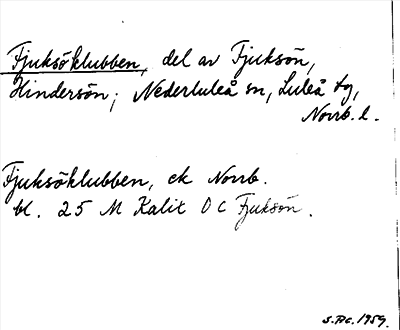 Fjuksöklubben, del av Fjuksön,
Hindersön; Nederluleå sn, Luleå tg,
Norrb. l.
Fjuksöklubben, ek Norrb.
bl. 25 M Kalix O C Fjuksön.
1959.